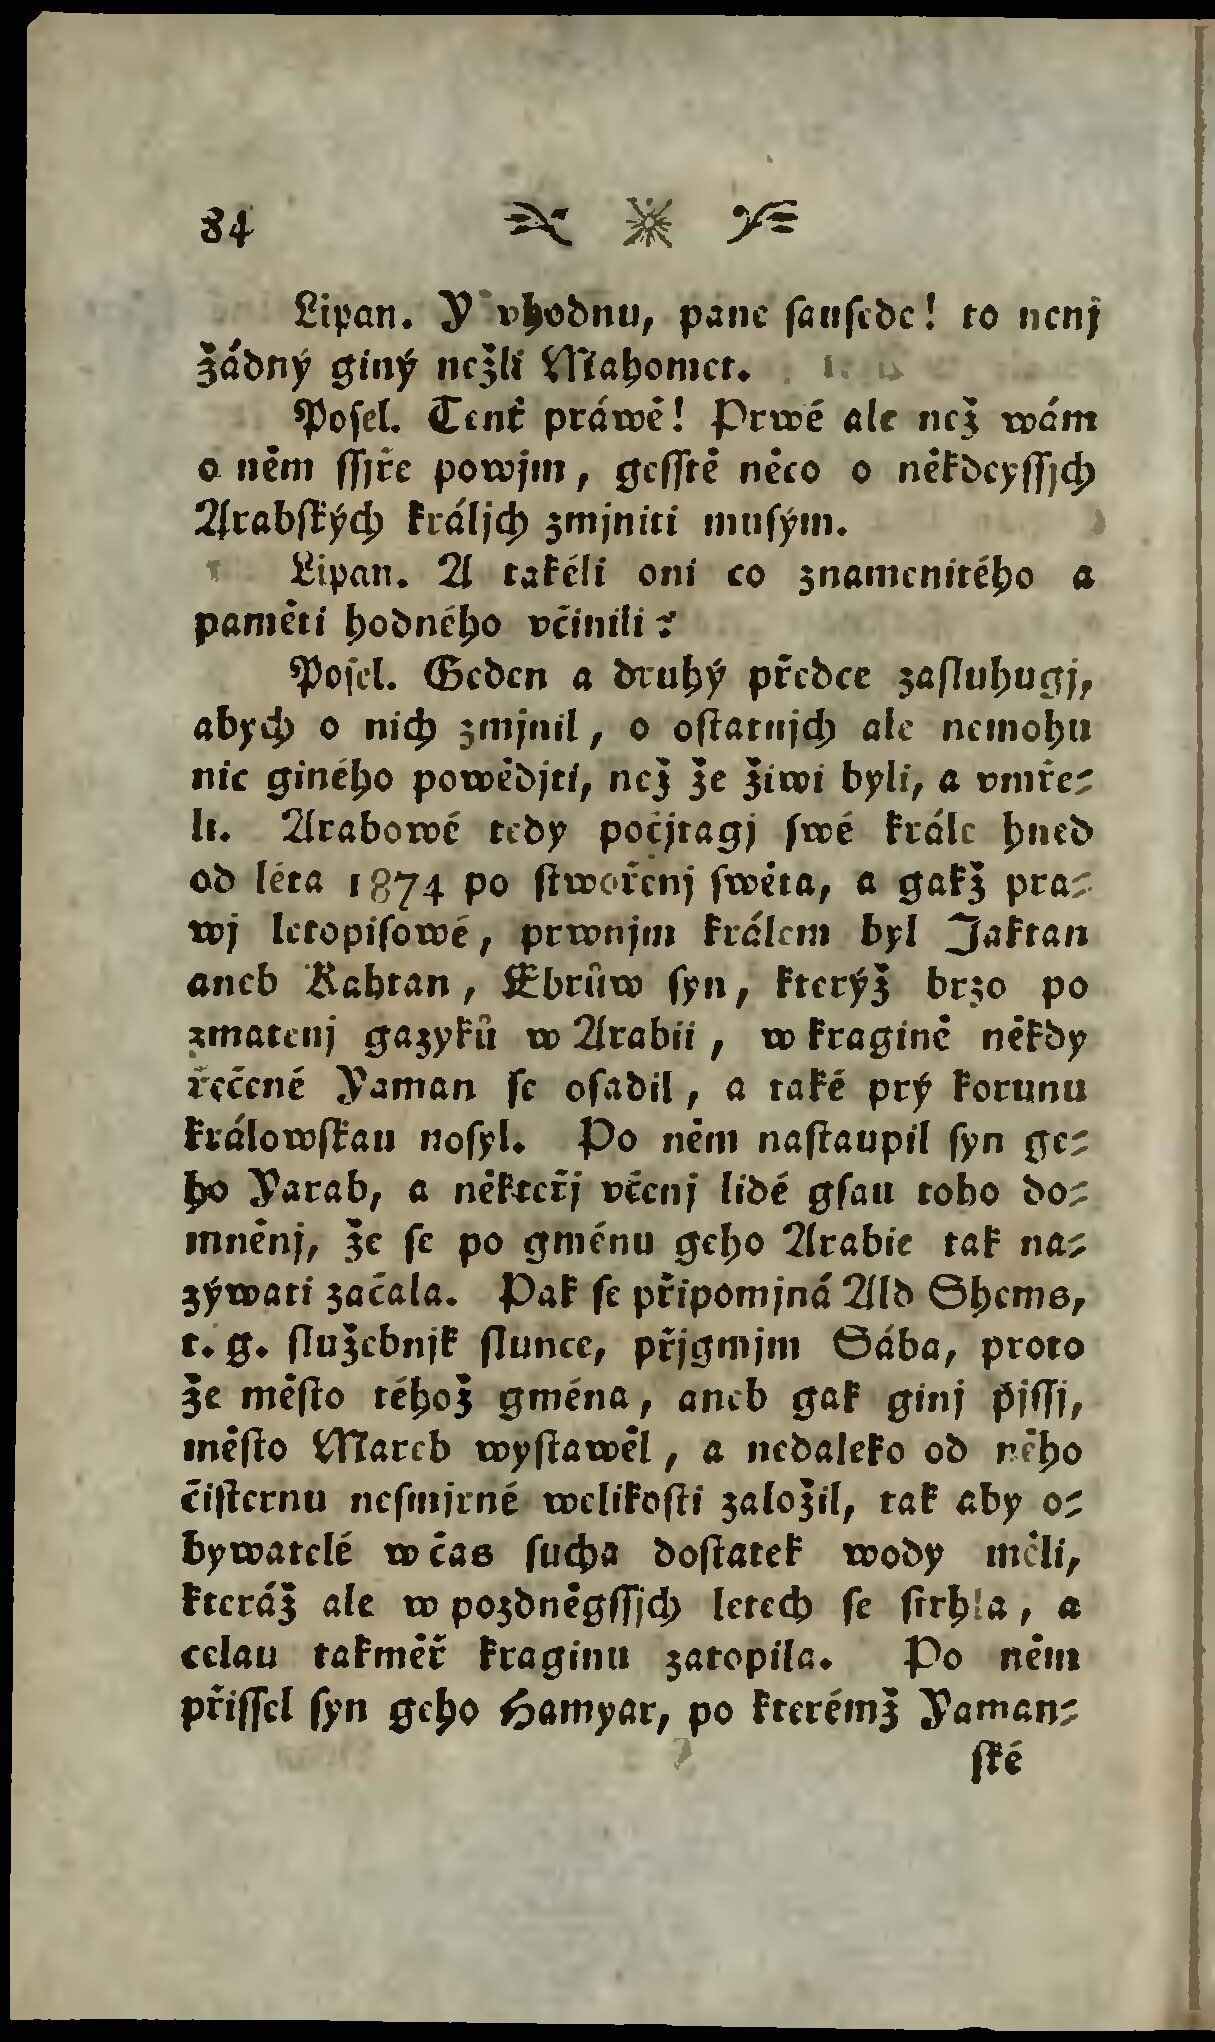 84
Lipan. Y vhodnu, pane sausede! to nenj
žádný giný nežli Mahomet.
Posel. Tenť práwě! Prwé ale než wám
o něm ssjře powjm, gesstě něco o někdeyssjch
Arabských králjch zmjniti musým.
Lipan. A takéli oni co znamenitého a
paměti hodného včinili?
Posel. Geden a druhý předce zasluhugj,
abych o nich zmjnil, o ostatnjch ale nemohu
nic giného powědjti, než že žiwi byli, a vmře-
li. Arabowé tedy počjtagj swé krále hned
od léta 1874 po stwořenj swěta, a gakž pra-
wj letopisowé, prwnjm králem byl Jaktan
aneb Kahtan, Ebrůw syn, kterýž brzo po
zmatenj gazyků w Arabii, w kragině někdy
řečené Yaman se osadil, a také prý korunu
králowskau nosyl. Po něm nastaupil syn ge-
ho Yarab, a někteřj včenj lidé gsau toho do-
mněnj, že se po gménu geho Arabie tak na-
zýwati začala. Pak se připomjná Ald Shems,
t. g. služebnjk slunce, přjgmjm Sába, proto
že město téhož gména, aneb gak ginj pjssj,
město Mareb wystawěl, a nedaleko od něho
čisternu nesmjrné welikosti založil, tak aby o-
bywatelé w čas sucha dostatek wody měli,
kteráž ale w pozdněgssjch letech se strhla, a
celau takměř kraginu zatopila. Po něm
přissel syn geho Hamyar, po kterémž Yaman-
ské